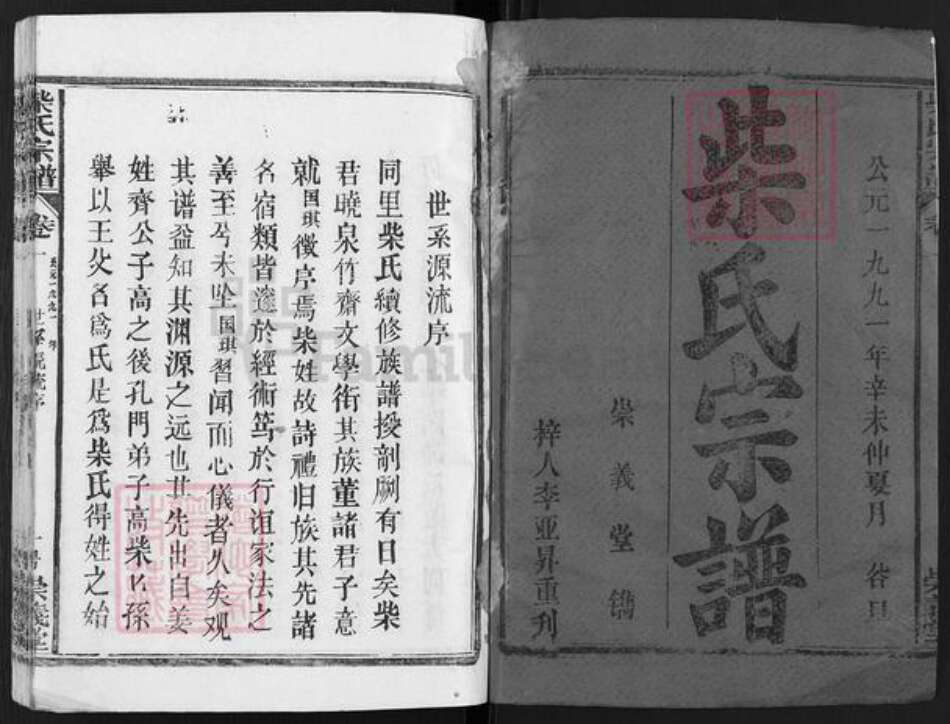 公元一九九一年辛未仲夏月 谷旦
柴氏宗譜
崇義堂鐫
梓人李亚昇重刊
世系源流序
同里柴氏續修族譜授剞劂有日矣柴
君曉泉竹齋文學衔其族董諸君子意
就国琪徵序焉柴姓故詩禮旧族其先諸
名宿類皆邃於經術笃於行谊家法之
善至兮未坠国琪習闻而心儀者久矣观
其谱益知其渊源之远也其先出自姜
姓齊公子高之後孔門弟子高柴以孫
舉以王父名爲氏是爲柴氏得姓之始
柴氏宗譜 卷一
公元一九九一年
世系源流序
崇義堂